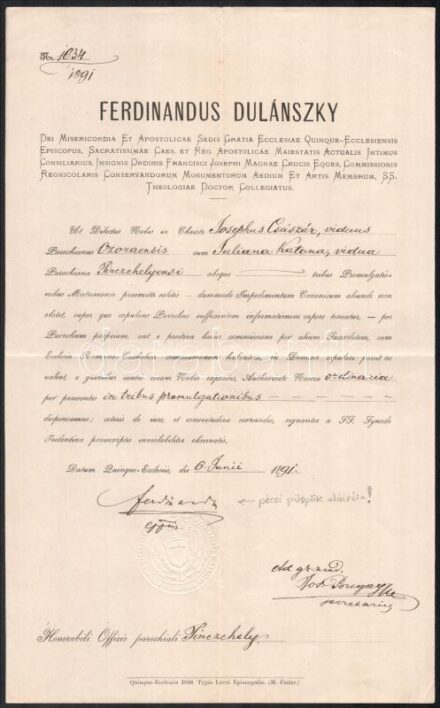 Nr. 1034
1891
FERDINANDUS DULÁNSZKY
Dei Misericordia Et Apostolicae Sedis Gratia Ecclesiae Quinque-Ecclesiensis
Episcopus, Sacratissimae Caes. et Reg. Apostolicae Maiestatis Actualis Intimus
Consiliarius, Insignis Ordinis Francisci Josephi Magnae Crucis Eques, Commissionis
Regnicolaris Conservandorum Monumentorum Aedium Et Artis Membrum, SS.
Theologiae Doctor Collegiatus.
Ut Dilectus Nobis in Christo Josephus Császár, viduus
Parochianus Ozoraensis cum Juliana Katona, vidua
Parochiana Pinczehelyensi absque tribus Promulgatio-
nibus Matrimonio praemitti solitis – dummodo Impedimentum Canonicum aliunde non
obstet, super quo copulans Parochus sufficientem informationem capere tenetur, — per
Parochum proprium, aut e postrema huius commissione per alium Sacerdotem, cum
Ecclesia Romano-Catholica communionem habentem, in Domino copulari possit ac
valeat, e gravibus causis coram Nobis expositis, Authoritate Nostra ordinaria
per praesentes in tribus promulgationibus
dispensamus; ceteris de iure, et consvetudine servandis, signanter a SS. Synodo
Tridentina praescriptis inviolabiliter observatis.
Datum Quinque-Ecclesiis, die 6. Junii 1891.
Ferdinandus
eppus
← pécsi püspök aláírása!
Ad gr. mand.
secretarius
Honorabili Officio parochiali Pinczehely
Quinque-Ecclesiis 1888. Typis Lycei Episcopalis. (M. Feiler.)
darabanth